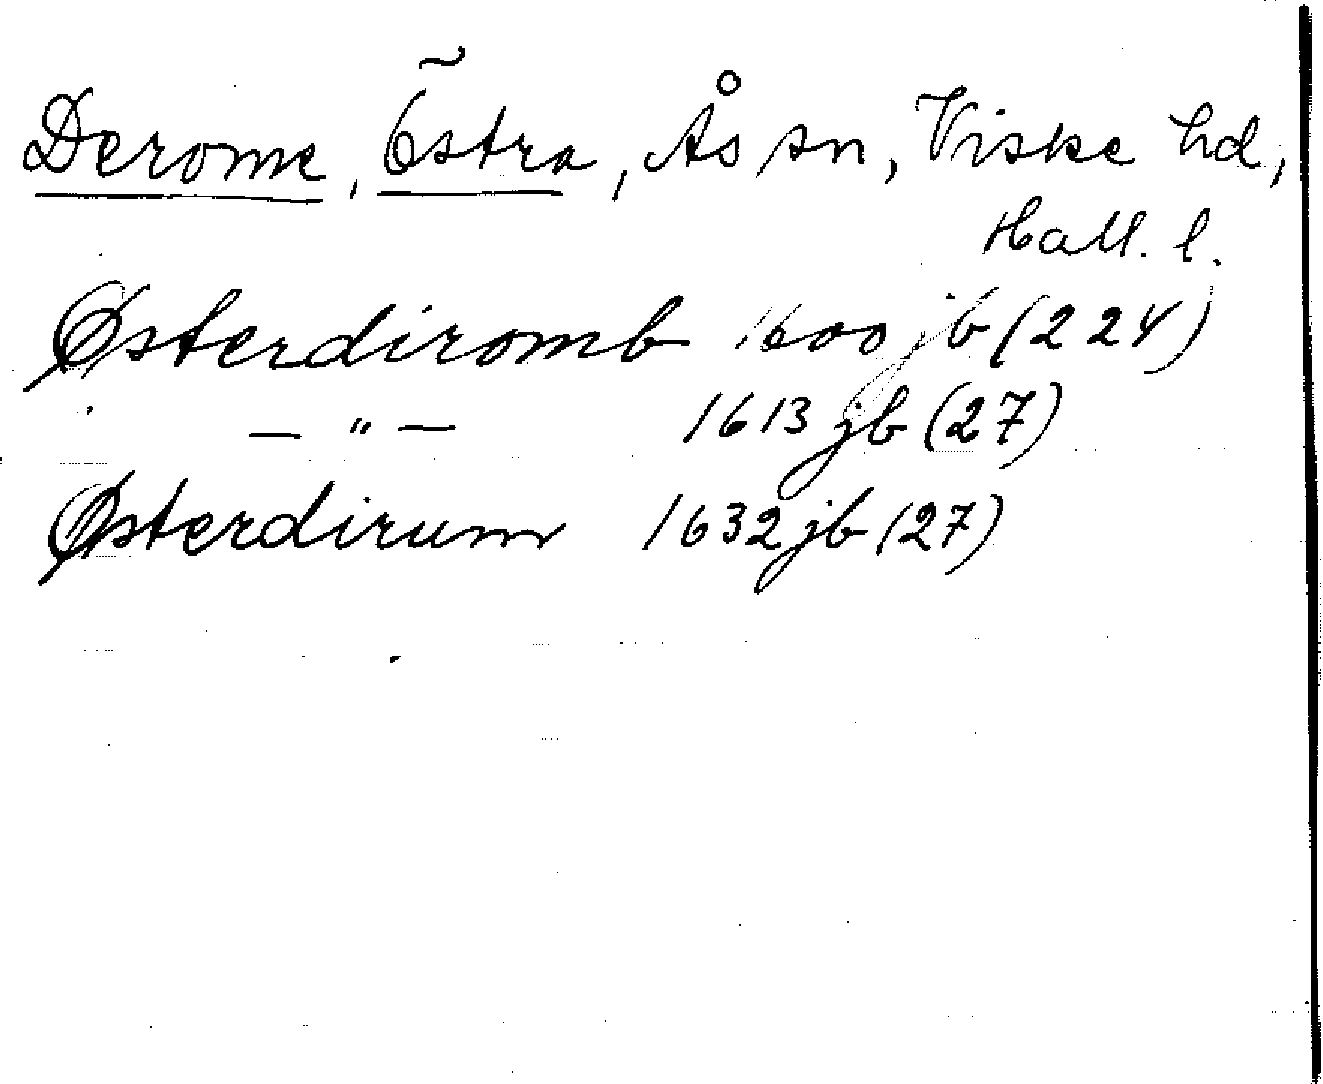 Derome, Östra, Ås sn, Viske hd,
Hall. l.
Østerdiromb 1600 jb (224)
— " — 1613 jb (27)
Østerdirum 1632 jb (27)